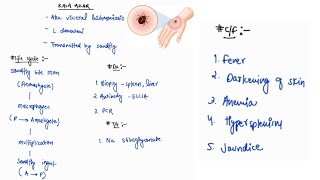 KALA AZAR
- Aka visceral leishmaniasis
- L. donovani
- Transmitted by sandfly
# Life cycle :-
sandfly bite man
(Promastigote)
macrophages
(P → Amastigote)
multiplication
sandfly ingest
(A → P)
# Dx :-
1. Biopsy - spleen, liver
2. Antibody - ELISA
3. PCR
# T/t :-
1. Na stibogluconate
# C/f :-
1. Fever
2. Darkening of skin
3. Anemia
4. Hypersplenism
5. Jaundice